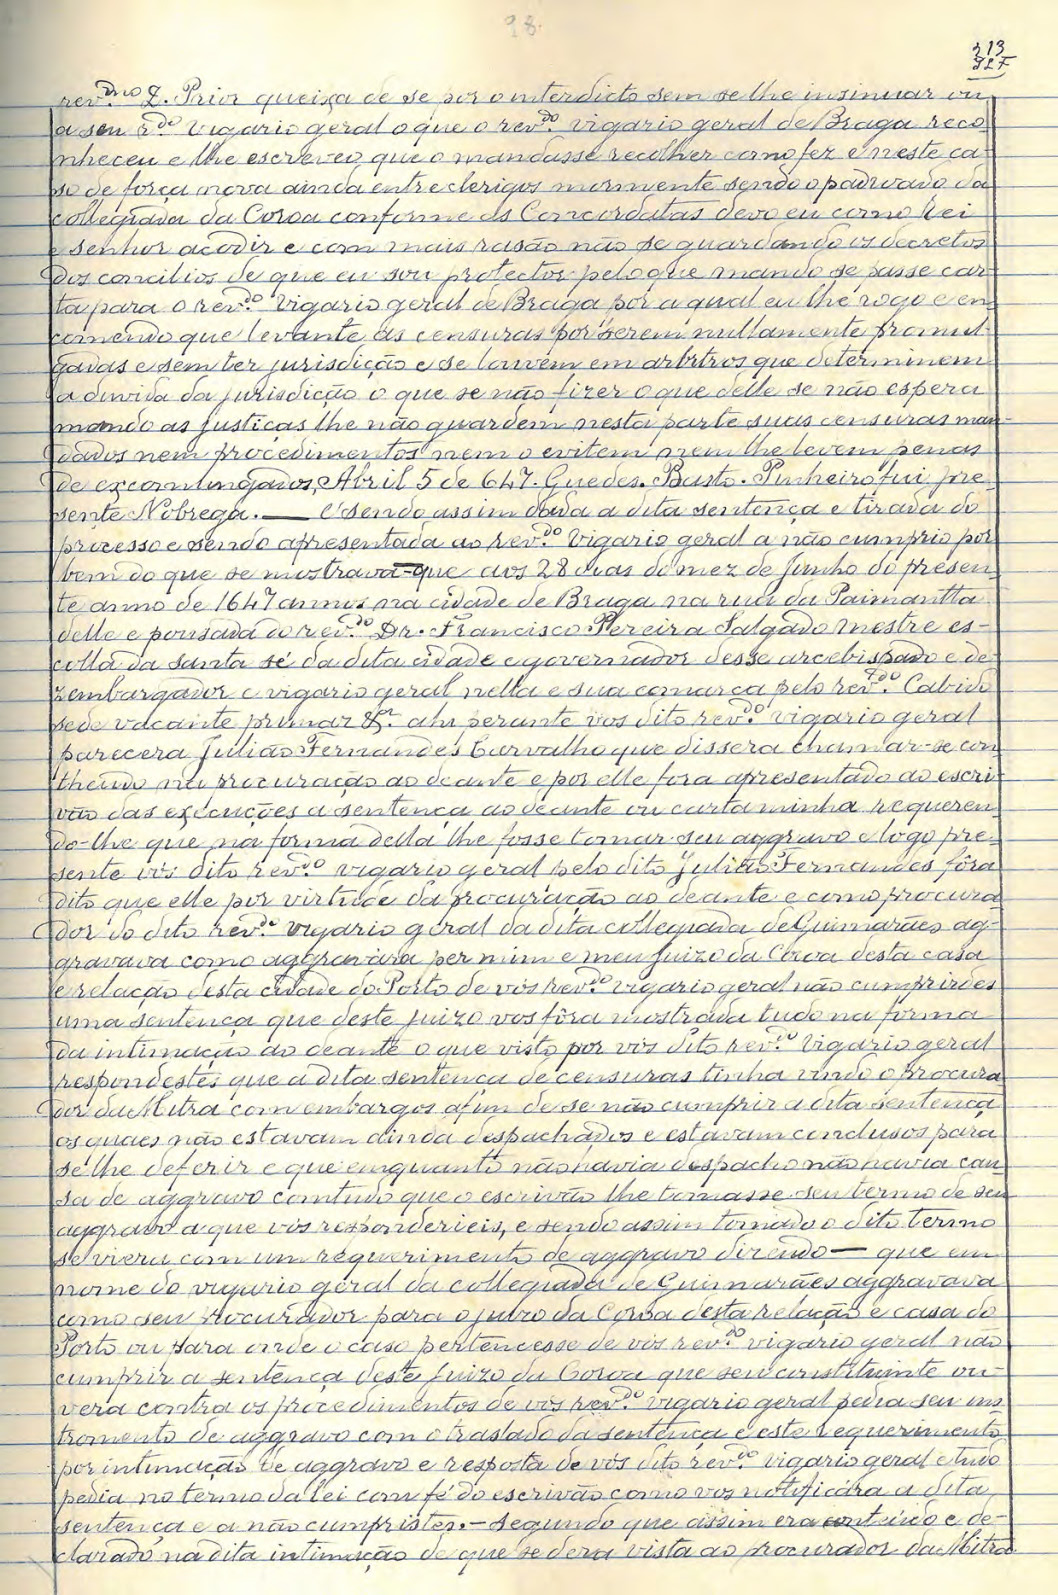 98.
213
rev.mo D. Prior queixa de se por o interdicto sem se lhe insinuar ou
a seu r.do vigario geral o que o rev.do vigario geral de Braga reco
nheceu e lhe escreveo que o mandasse recolher como fez e neste ca-
so de força nova ainda entre clerigos mormente sendo o padroado da
collegiada da Coroa conforme as Concordatas devo eu como Rei
e senhor acodir e com mais rasão não se guardando os decretos
dos concilios de que eu sou protector pelo que mando se passe car-
ta para o rev.do vigario geral de Braga por a qual eu lhe rogo e en
comendo que levante as censuras por serem nullamente promul-
gadas e sem ter jurisdicção e se louvem em arbitros que determinem
a duvida da jurisdicção o que se não fizer o que delle se não espera
mando as justiças lhe não guardem nesta parte suas censuras man-
dados nem procedimentos nem o evitem nem lhe levem penas
de excomungados, Abril 5 de 647. Guedes. Basto. Pinheiro fui pre
sente Nobrega. — E sendo assim dada a dita sentença e tirada do
processo e sendo apresentada ao rev.do vigario geral a não cumprio por
bem do que se mostrava que aos 28 dias do mez de Junho do presen
te anno de 1647 annos na cidade de Braga na rua da
delle e pousada do rev.do Dr. Francisco Pereira Salgado mestre es-
colla da santa sé da dita cidade e governador desse arcebispado e de-
zembargador e vigario geral nella e sua comarca pelo rev.do Cabido
sede vacante primaz &.ª ahi perante vos dito rev.do vigario geral
parecera Julião Fernandes Carvalho que dissera chamar-se con
theudo na procuração ao deante e por elle fora apresentado ao escri
vão das execuções a sentença ao deante ou carta minha requeren
do-lhe que na forma della lhe fosse tomar seu aggravo e logo pre-
sente vós dito rev.do vigario geral pelo dito Julião Fernandes fôra
dito que elle por virtude da procuração ao deante e como procura
dor do dito rev.do vigario geral da dita collegiada de Guimarães ag-
gravava como aggravára per mim e meu Juizo da Coroa desta casa
e relação desta cidade do Porto de vós rev.do vigario geral não cumprirdes
uma sentença que deste juizo vos fôra mostrada tudo na forma
da intimação ao deante o que visto por vós dito rev.do vigario geral
respondestes que a dita sentença de censuras tinha vindo o procura
dor da Mitra com embargos afim de se não cumprir a dita sentença
os quaes não estavam ainda despachados e estavam conclusos para
se lhe deferir e que emquanto não havia despacho não havia cau
sa de aggravo comtudo que o escrivão lhe tomasse seu termo de seu
aggravo a que vós responderieis, e sendo assim tomado o dito termo
se viera com um requerimento de aggravo dizendo — que em
nome do vigario geral da collegiada de Guimarães aggravava
como seu procurador para o juizo da Coroa desta relação e casa do
Porto ou para onde o caso pertencesse de vós rev.do vigario geral não
cumprir a sentença deste Juizo da Coroa que seu constituinte ou-
vera contra os procedimentos de vós rev.do vigario geral pedia seu ins
tromento de aggravo com o traslado da sentença e este requerimento
por intimação de aggravo e resposta de vós dito rev.do vigario geral e tudo
pedia no termo da lei com fé do escrivão como vos notificára a dita
sentença e a não cumpristes. — Segundo que assim era conteúdo e de-
clarado na dita intimação de que se dera vista ao procurador da Mitra